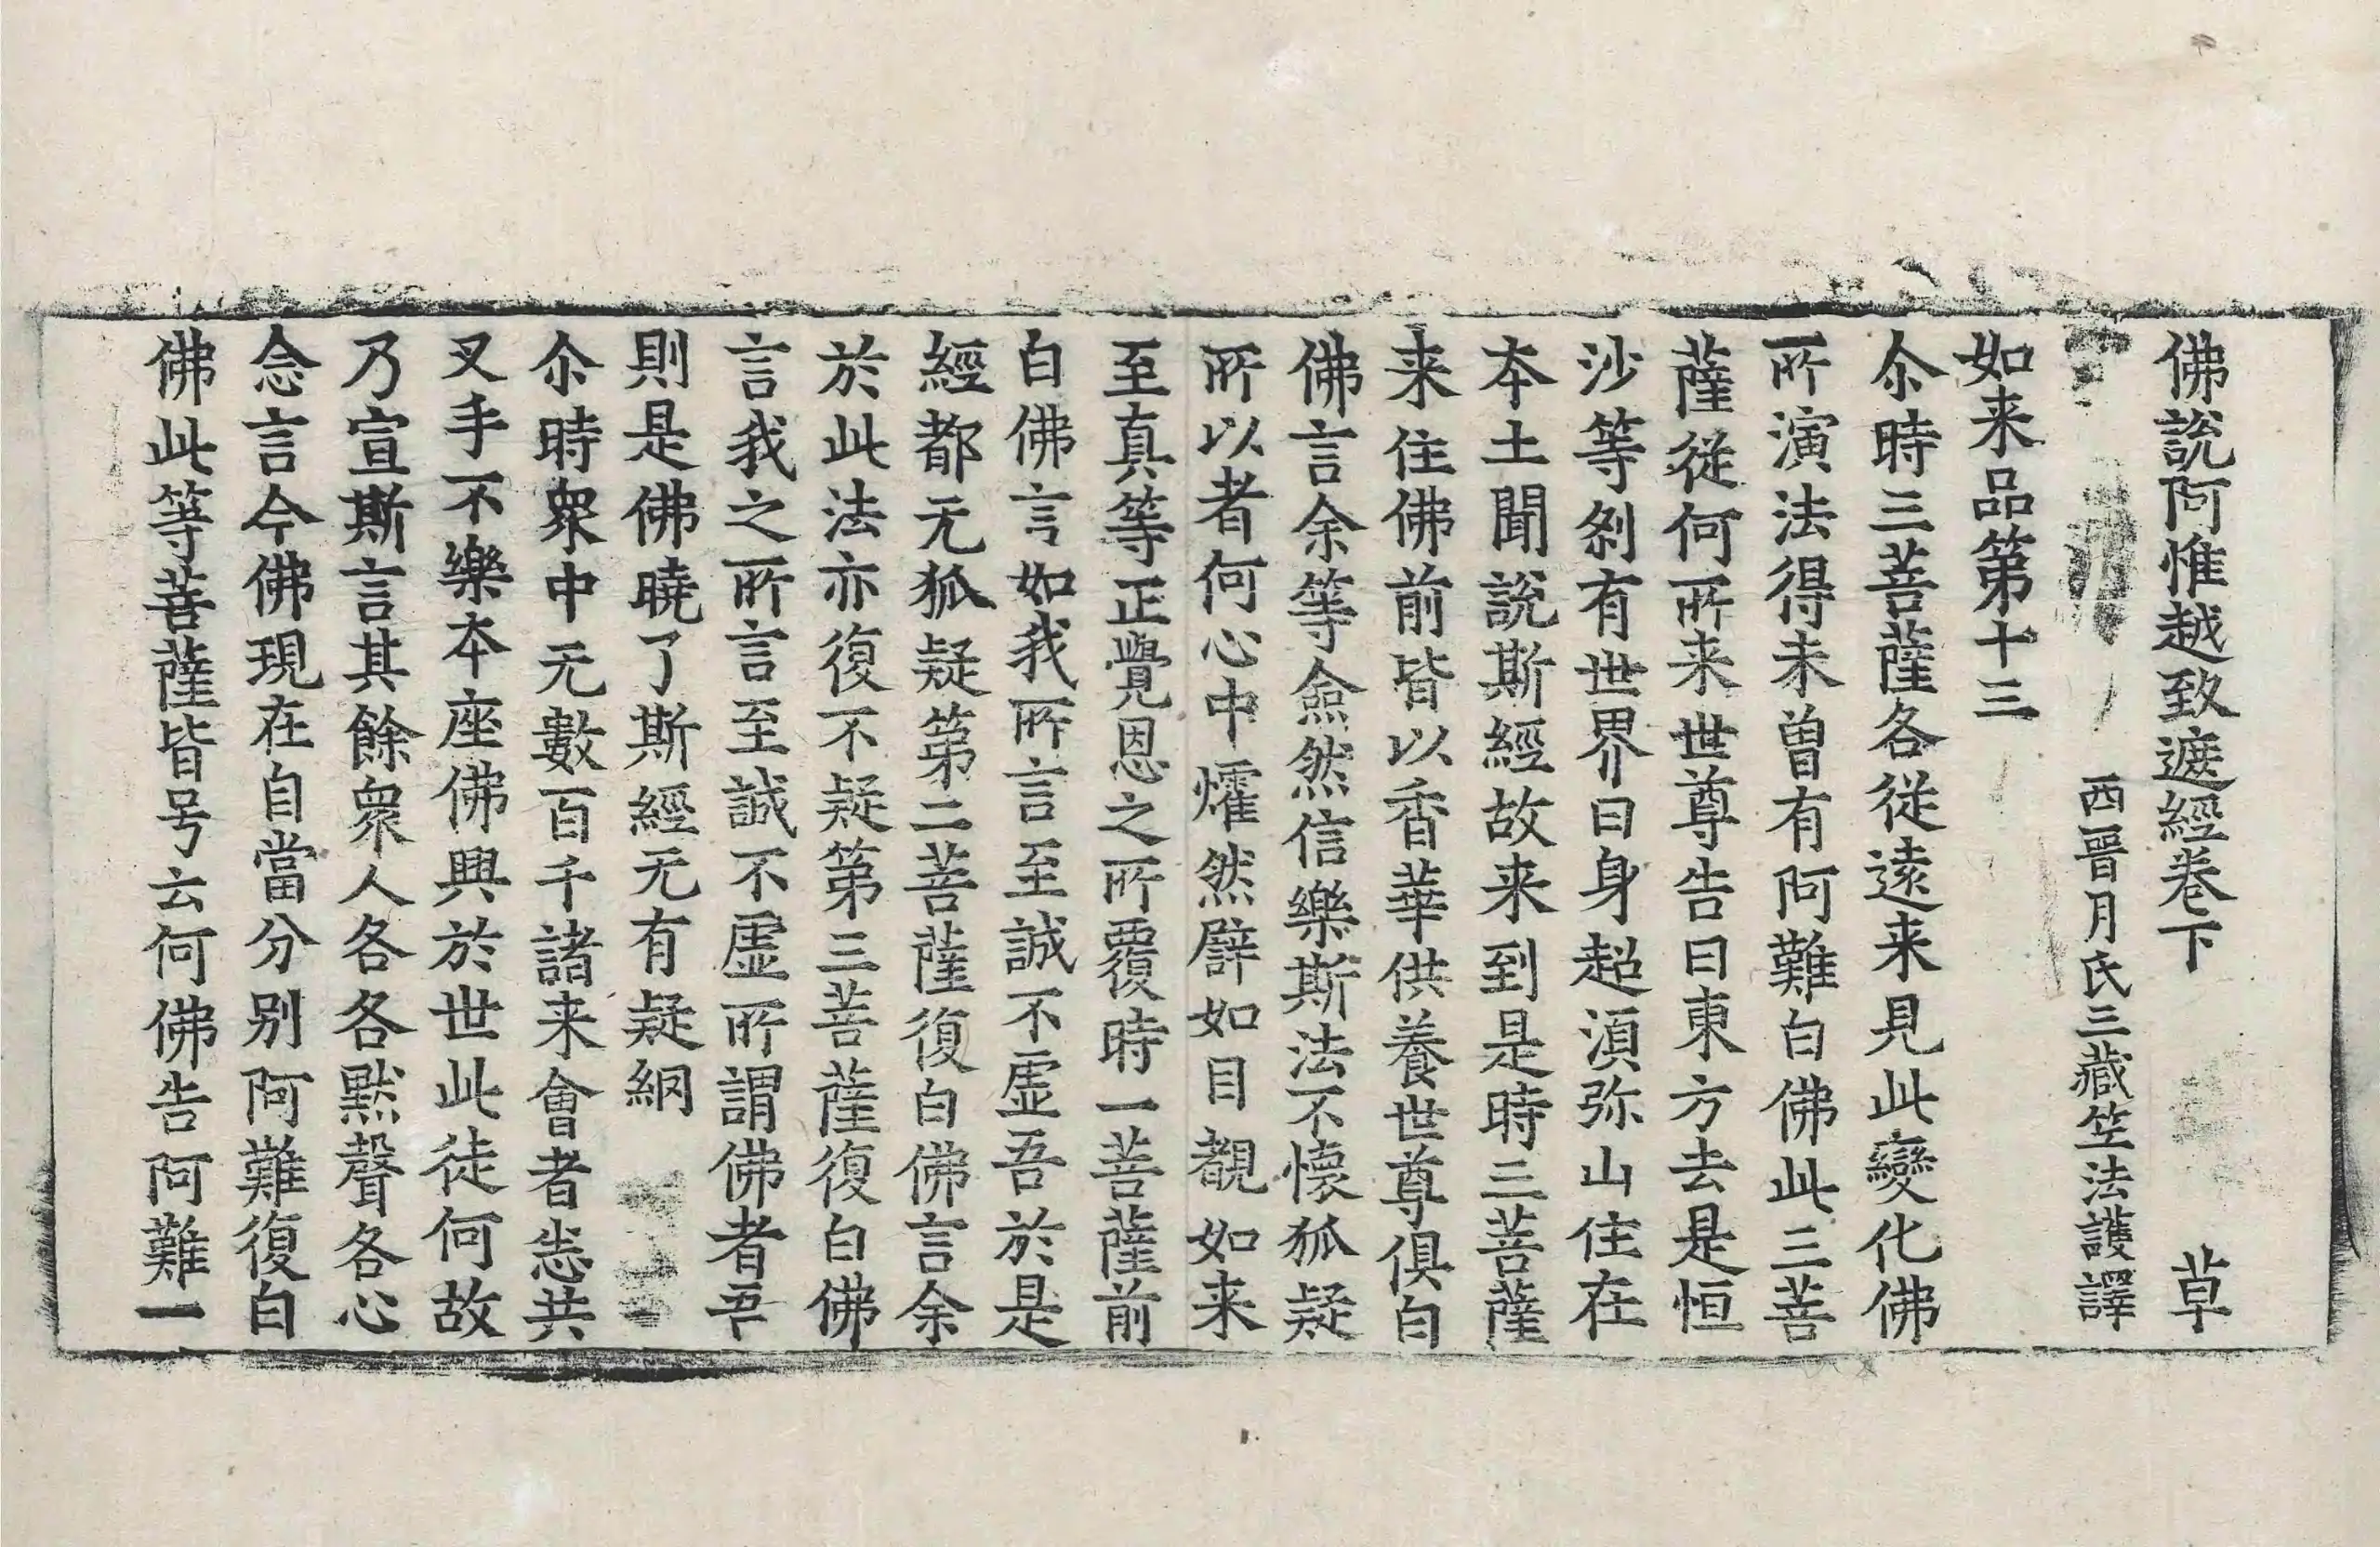 佛說阿惟越致遮經卷下 草
西晉月氏三藏竺法護譯
如来品第十三
尒時三菩薩各從遠来見此變化佛
所演法得未曾有阿難白佛此三菩
薩從何所来世尊告曰東方去是恒
沙等剎有世界曰身超湏弥山住在
本土聞說斯經故来到是時三菩薩
来住佛前皆以香華供養世尊俱白
佛言余等僉然信樂斯法不懷狐疑
所以者何心中燿然譬如目覩如来
至真等正覺恩之所覆時一菩薩前
白佛言如我所言至誠不虛吾於是
經都无狐疑第二菩薩復白佛言余
於此法亦復不疑第三菩薩復白佛
言我之所言至誠不虛所謂佛者吾
則是佛曉了斯經无有疑網
尒時衆中无數百千諸来會者悉共
叉手不樂本座佛興於世此徒何故
乃宣斯言其餘衆人各各黙聲各心
念言今佛現在自當分别阿難復白
佛此等菩薩皆号云何佛告阿難一